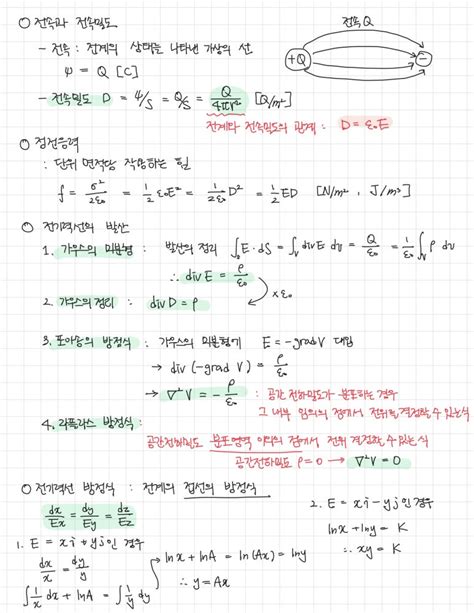 ○ 전속과 전속밀도
전속 Q
+Q
−
- 전속 : 전계의 상태를 나타낸 가상의 선
Ψ = Q [C]
- 전속밀도 D = Ψ/S = Q/S = Q/4πr² [Q/m²]
전계와 전속밀도의 관계 : D = ε₀E
○ 정전응력
: 단위 면적당 작용하는 힘
f = σ²/2ε₀ = 1/2 ε₀E² = 1/2ε₀ D² = 1/2 ED [N/m², J/m³]
○ 전기력선의 발산
1. 가우스의 미분형 : 발산의 정리 ∫ₛ E·dS = ∫ᵥ div E dv = Q/ε₀ = 1/ε₀ ∫ᵥ ρ dv
∴ div E = ρ/ε₀
×ε₀
2. 가우스의 정리 : div D = ρ
3. 포아송의 방정식 : 가우스의 미분형에 E = -grad V 대입
→ div (-grad V) = ρ/ε₀
→ ∇²V = - ρ/ε₀ : 공간 전하밀도가 분포하는 경우
그 내부 임의의 점에서 전위를 결정할 수 있는 식
4. 라플라스 방정식 :
공간전하밀도 분포영역 이외의 점에서 전위 결정할 수 있는 식
공간전하밀도 ρ = 0 → ∇²V = 0
○ 전기력선 방정식 : 전계의 접선의 방정식
dx/Ex = dy/Ey = dz/Ez
1. E = xi + yj 인 경우
dx/x = dy/y
∫ 1/x dx + lnA = ∫ 1/y dy
lnx + lnA = ln(Ax) = lny
∴ y = Ax
2. E = xi - yj 인 경우
lnx + lny = K
∴ xy = K